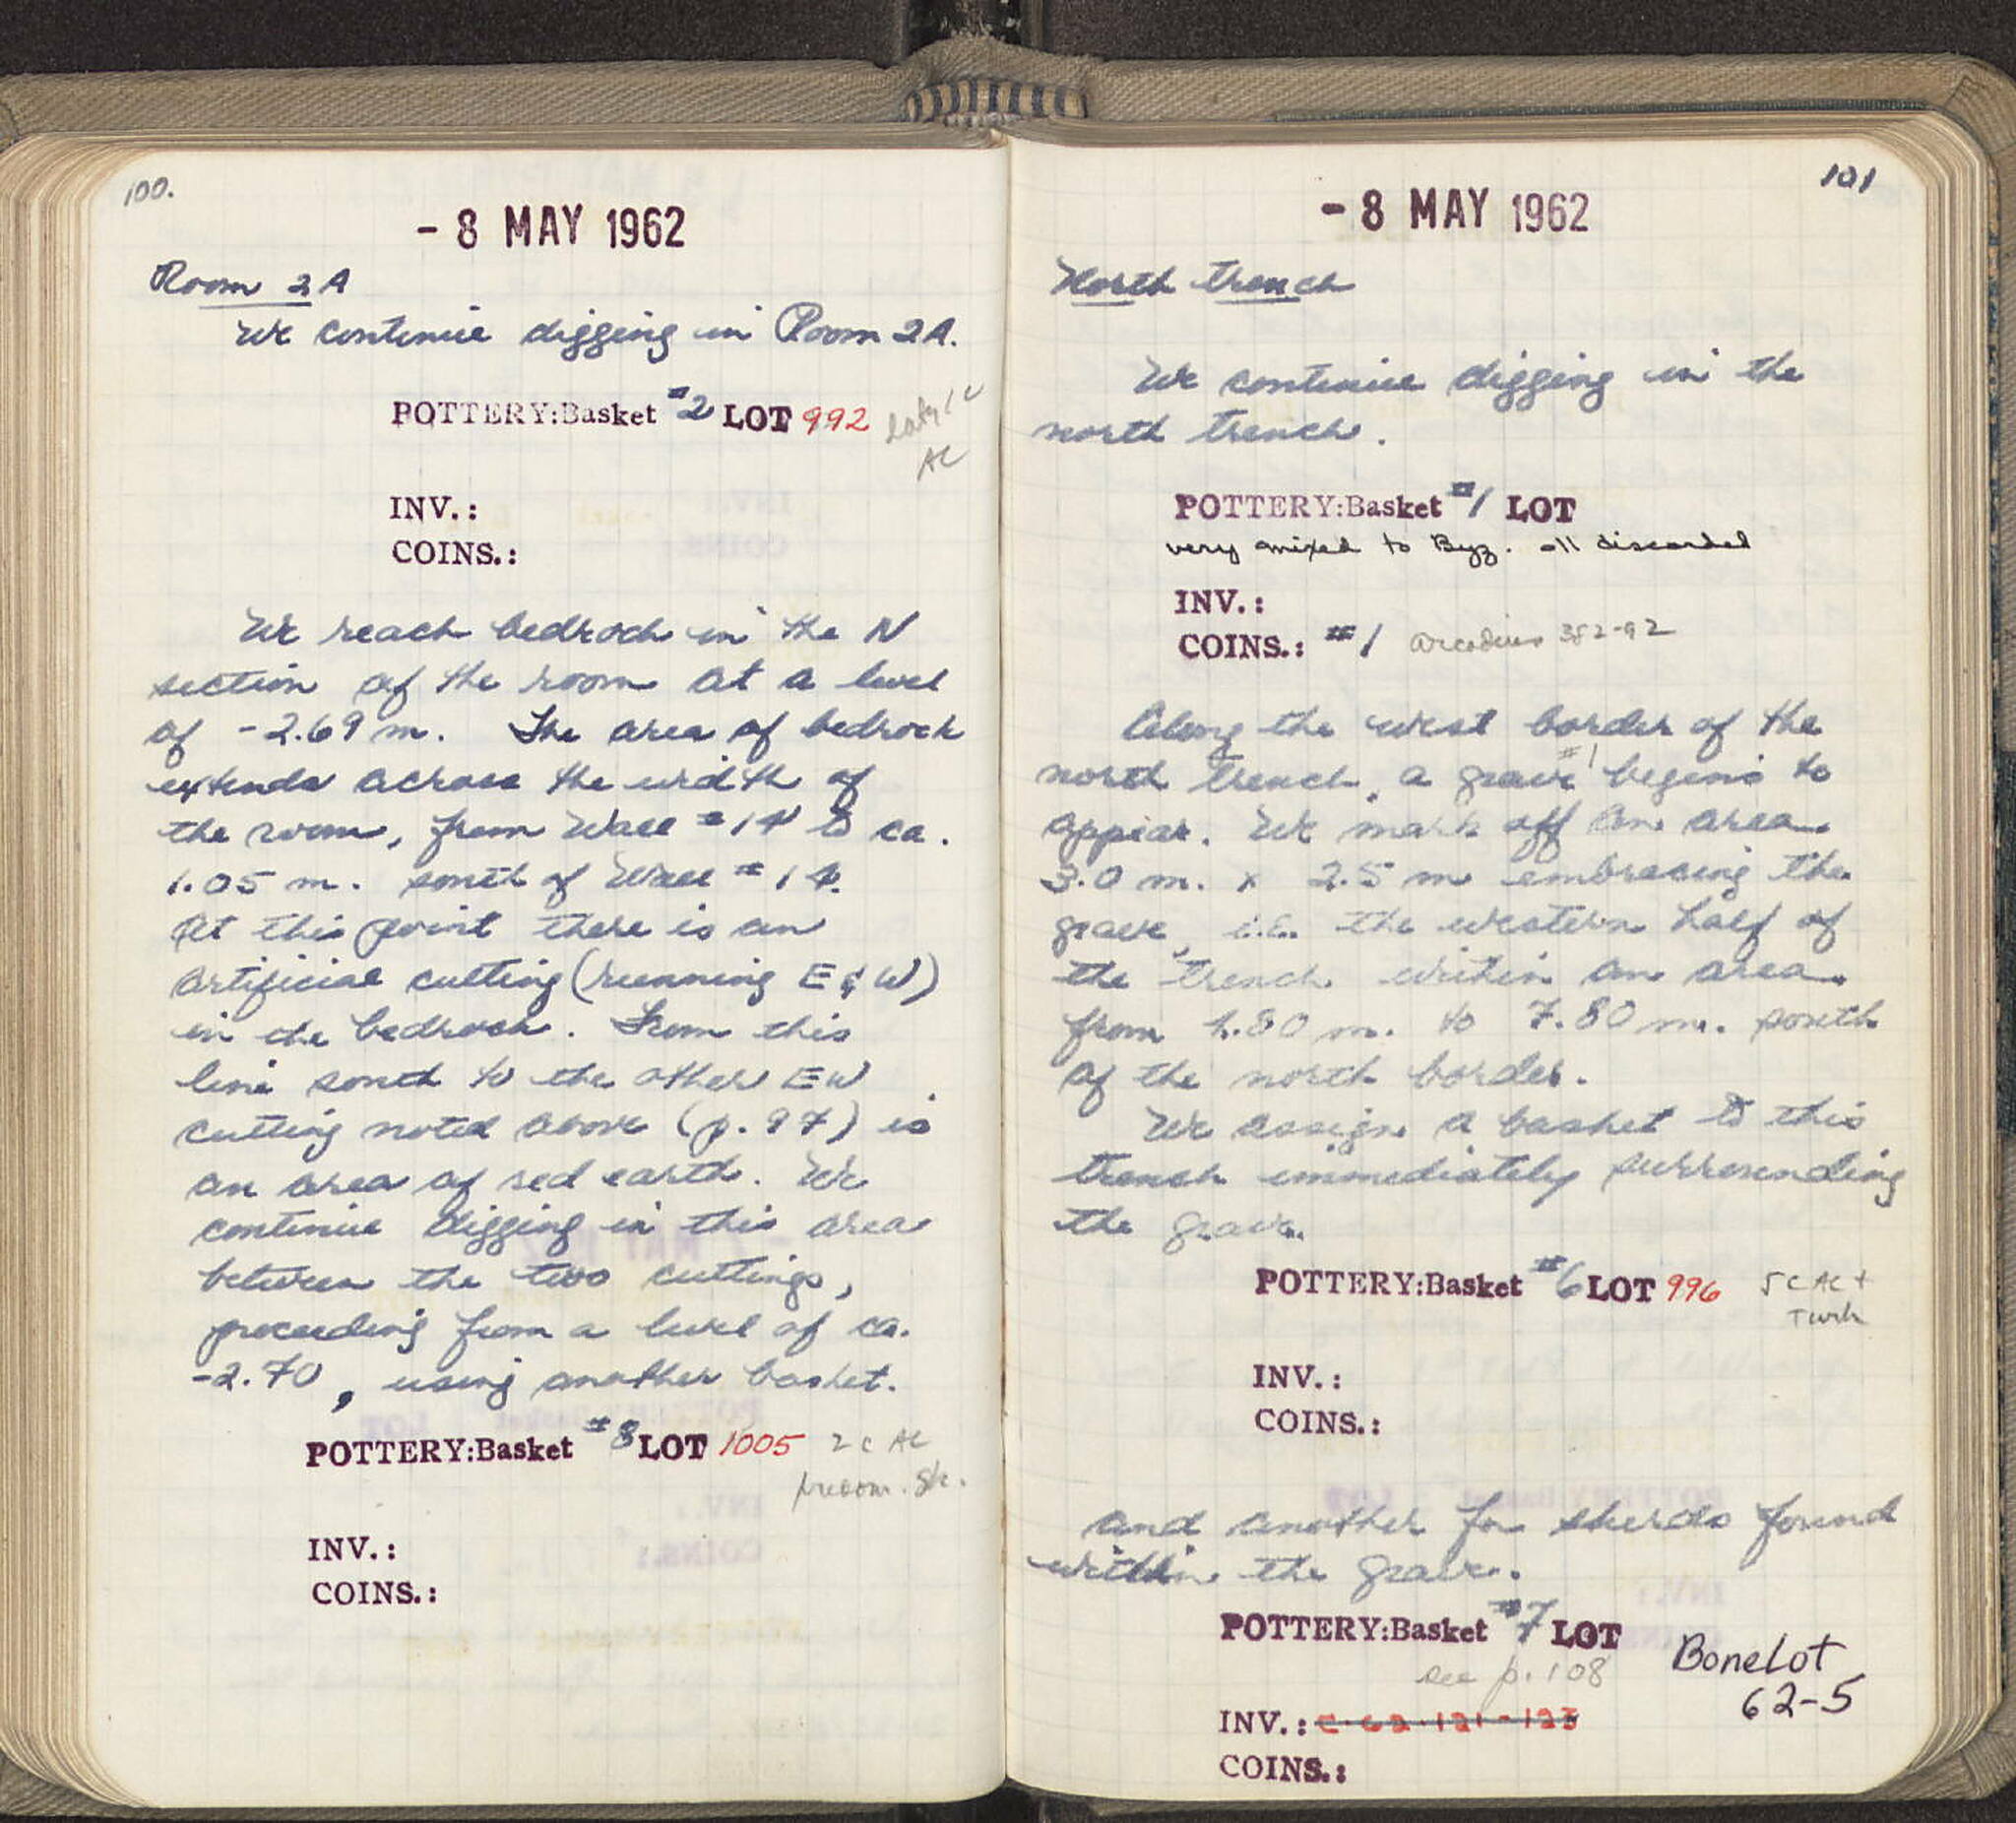 100.
- 8 MAY 1962
Room 2A
We continue digging in Room 2A.
POTTERY:Basket #2 LOT 992
AC
INV.:
COINS.:
We reach bedrock in the N
section of the room at a level
of -2.69 m. The area of bedrock
extends across the width of
the room, from Wall #14 to ca.
1.05 m. south of Wall #14.
At this point there is an
artificial cutting (running E & W)
in the bedrock. From this
line south to the other EW
cutting noted above (p. 97) is
an area of red earth. We
continue digging in this area
between the two cuttings,
proceeding from a level of ca.
-2.70, using another basket.
POTTERY:Basket #8 LOT 1005 2 c AC
INV.:
COINS.:
101
- 8 MAY 1962
North trench
We continue digging in the
north trench.
POTTERY:Basket #1 LOT
very mixed to Byz. all discarded
INV.:
COINS.: #1 Arcadius
Along the west border of the
north trench, a grave #1 begins to
appear. We mark off an area
3.0 m. x 2.5 m embracing the
grave, i.e. the western half of
the trench within an area
from 4.80 m. to 7.80 m. south
of the north border.
We assign a basket to this
trench immediately surrounding
the grave.
POTTERY:Basket #6 LOT 996 5 C AC +
Turk
INV.:
COINS.:
and another for sherds found
within the grave.
POTTERY:Basket #7 LOT
see p. 108
Bone Lot
62-5
INV.: C-62-121-123
COINS.: